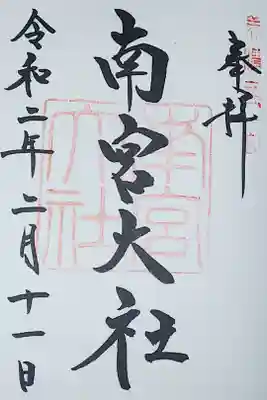 奉拝
南宮大社
令和二年二月十一日
南宮大社